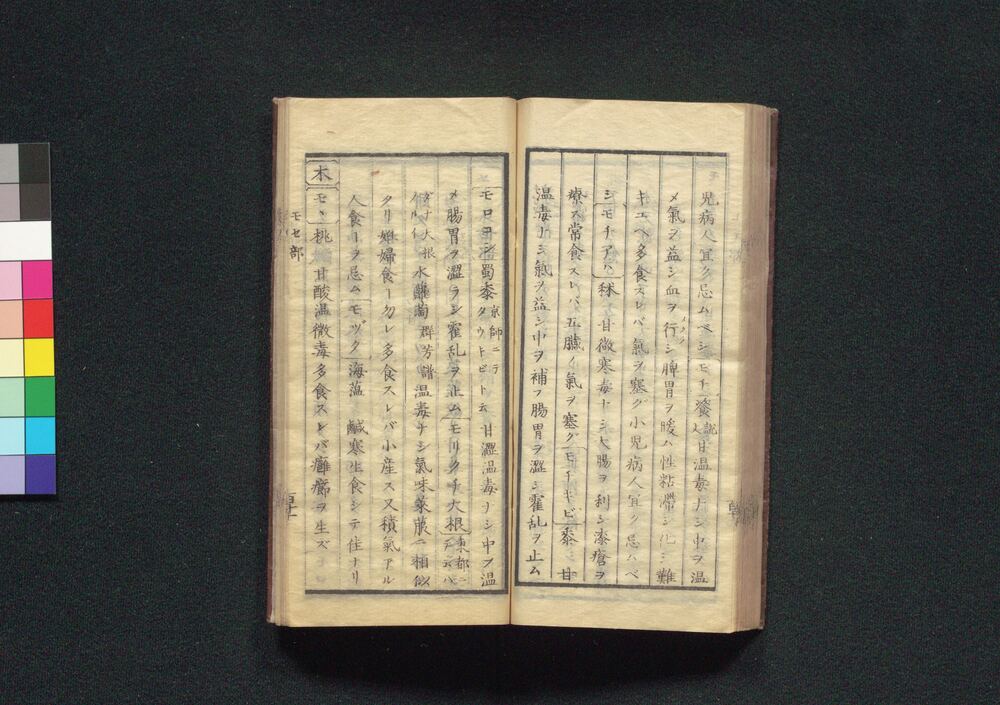 児病人宜ク忌ムベシ モチ 餈 甘温毒ナシ中ヲ温
メ氣ヲ益シ血ヲ行シ脾胃ヲ暖ム性粘滞シ化シ難
キユヘ多食スレバ氣ヲ塞グ小児病人宜ク忌ムベ
シ モチアハ 秫 甘微寒毒ナシ大腸ヲ利シ漆瘡ヲ
療ス常食スレバ五臓ノ氣ヲ塞グ モチキビ 黍 甘
温毒ナシ氣ヲ益シ中ヲ補フ腸胃ヲ澀シ霍乱ヲ止ム
モロコシ 蜀黍 京師ニテタウキビト云 甘澀温毒ナシ中ヲ温
メ腸胃ヲ澀ラシ霍乱ヲ止ム モリクチ大根 東都ニテ
大根 水蘿蔔 群芳譜 温毒ナシ氣味莱菔ニ相似
タリ姙婦食ー勿レ多食スレバ小産ス又積氣アル
人食ーヲ忌ム モヅク 海蕰 鹹寒生食シテ佳ナリ
木 モヽ 桃 甘酸温微毒多食スレバ癰癤ヲ生ズ
モセ部